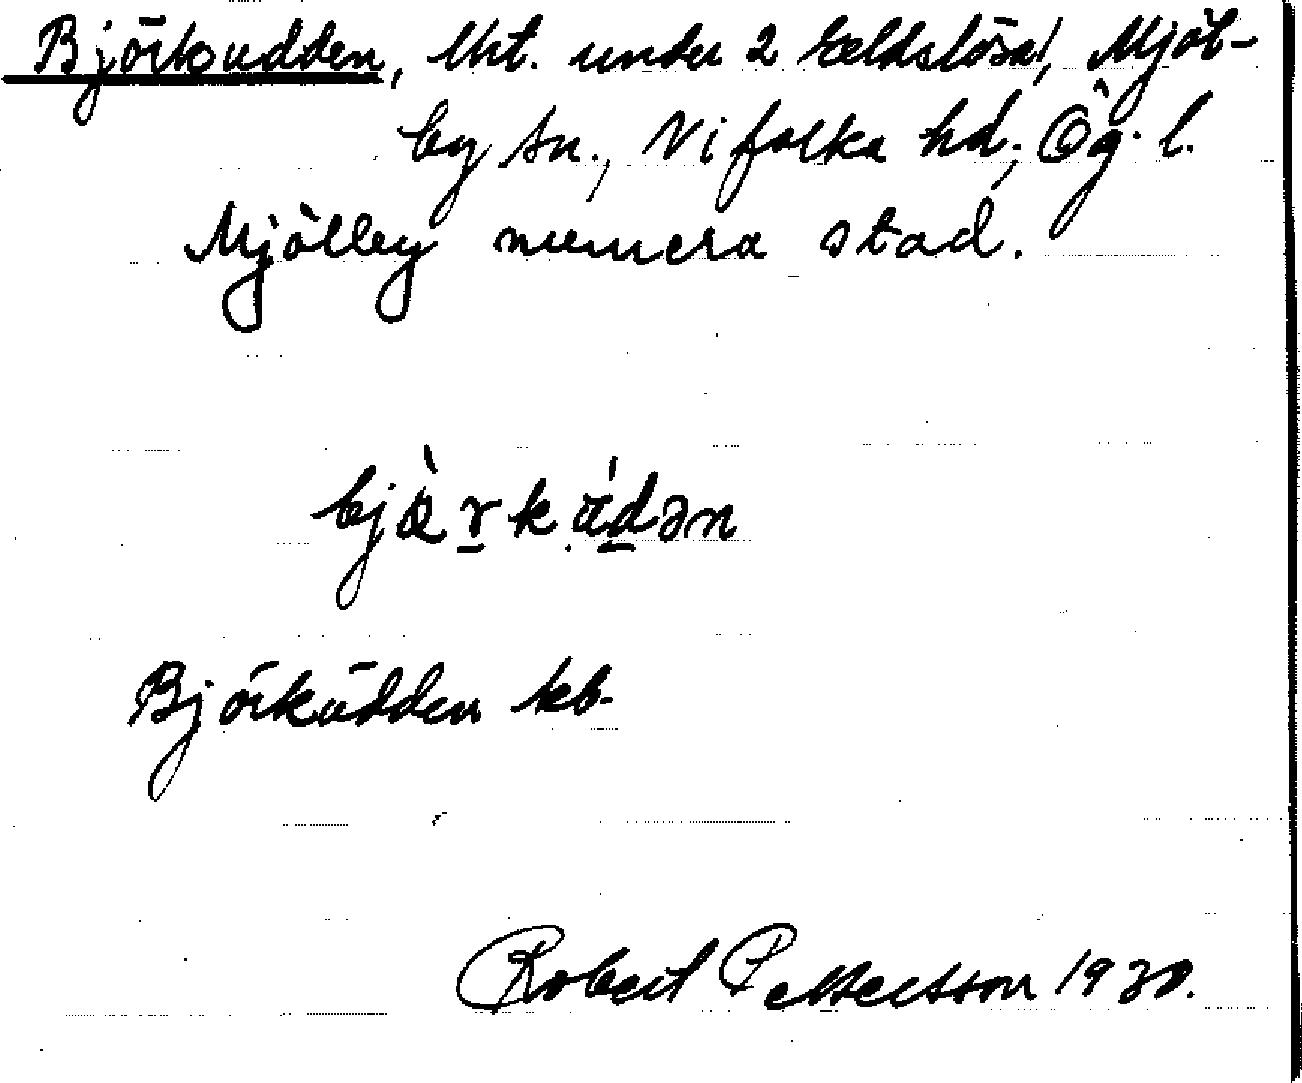 Björkudden, lht. under 2 Sældslösa!, Mjöl-
by sn., Vifolka hd., Ög. l.
Mjölby numera stad.
bjœ̀rkɑ́dən
Björkudden kb.
Robert Pettersson 1930.